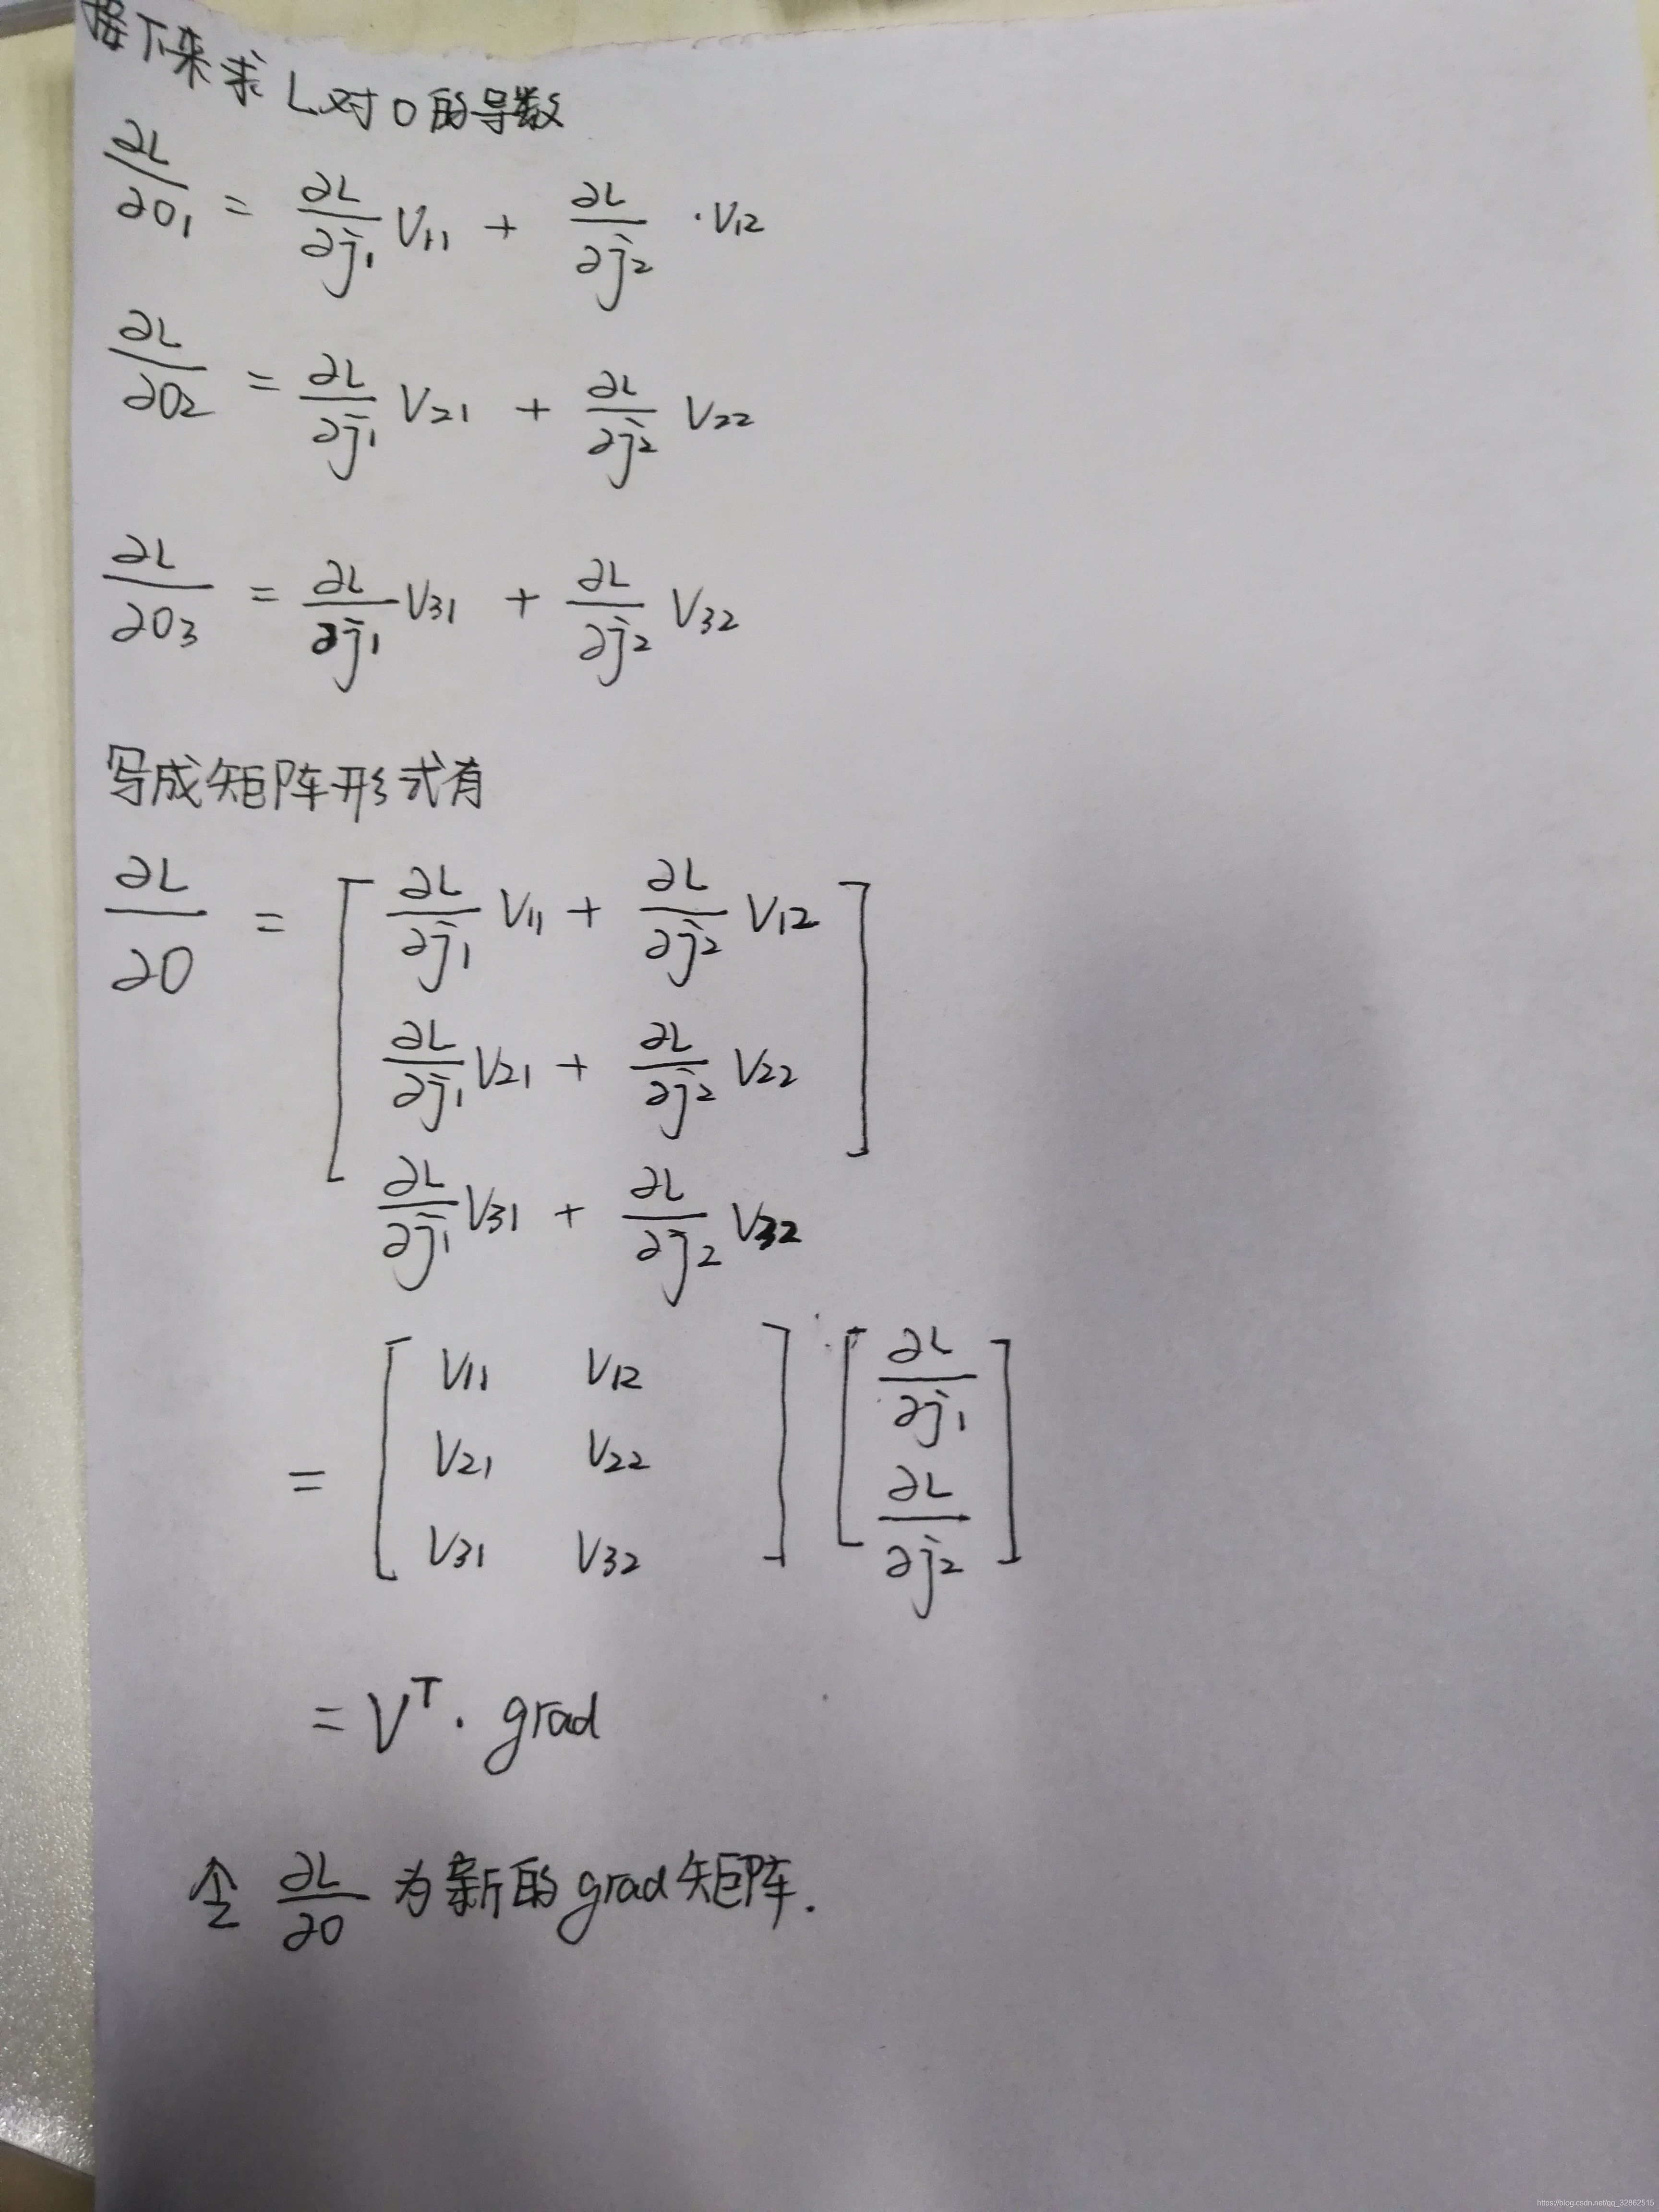 接下来求L对O的导数
∂L/∂O₁ = ∂L/∂j₁ V₁₁ + ∂L/∂j₂ · V₁₂
∂L/∂O₂ = ∂L/∂j₁ V₂₁ + ∂L/∂j₂ V₂₂
∂L/∂O₃ = ∂L/∂j₁ V₃₁ + ∂L/∂j₂ V₃₂
写成矩阵形式有
∂L/∂O = [ ∂L/∂j₁ V₁₁ + ∂L/∂j₂ V₁₂
∂L/∂j₁ V₂₁ + ∂L/∂j₂ V₂₂
∂L/∂j₁ V₃₁ + ∂L/∂j₂ V₃₂ ]
= [ V₁₁ V₁₂
V₂₁ V₂₂
V₃₁ V₃₂ ] · [ ∂L/∂j₁
∂L/∂j₂ ]
= Vᵀ · grad
令 ∂L/∂O 为新的grad矩阵.
https://blog.csdn.net/qq_32862515